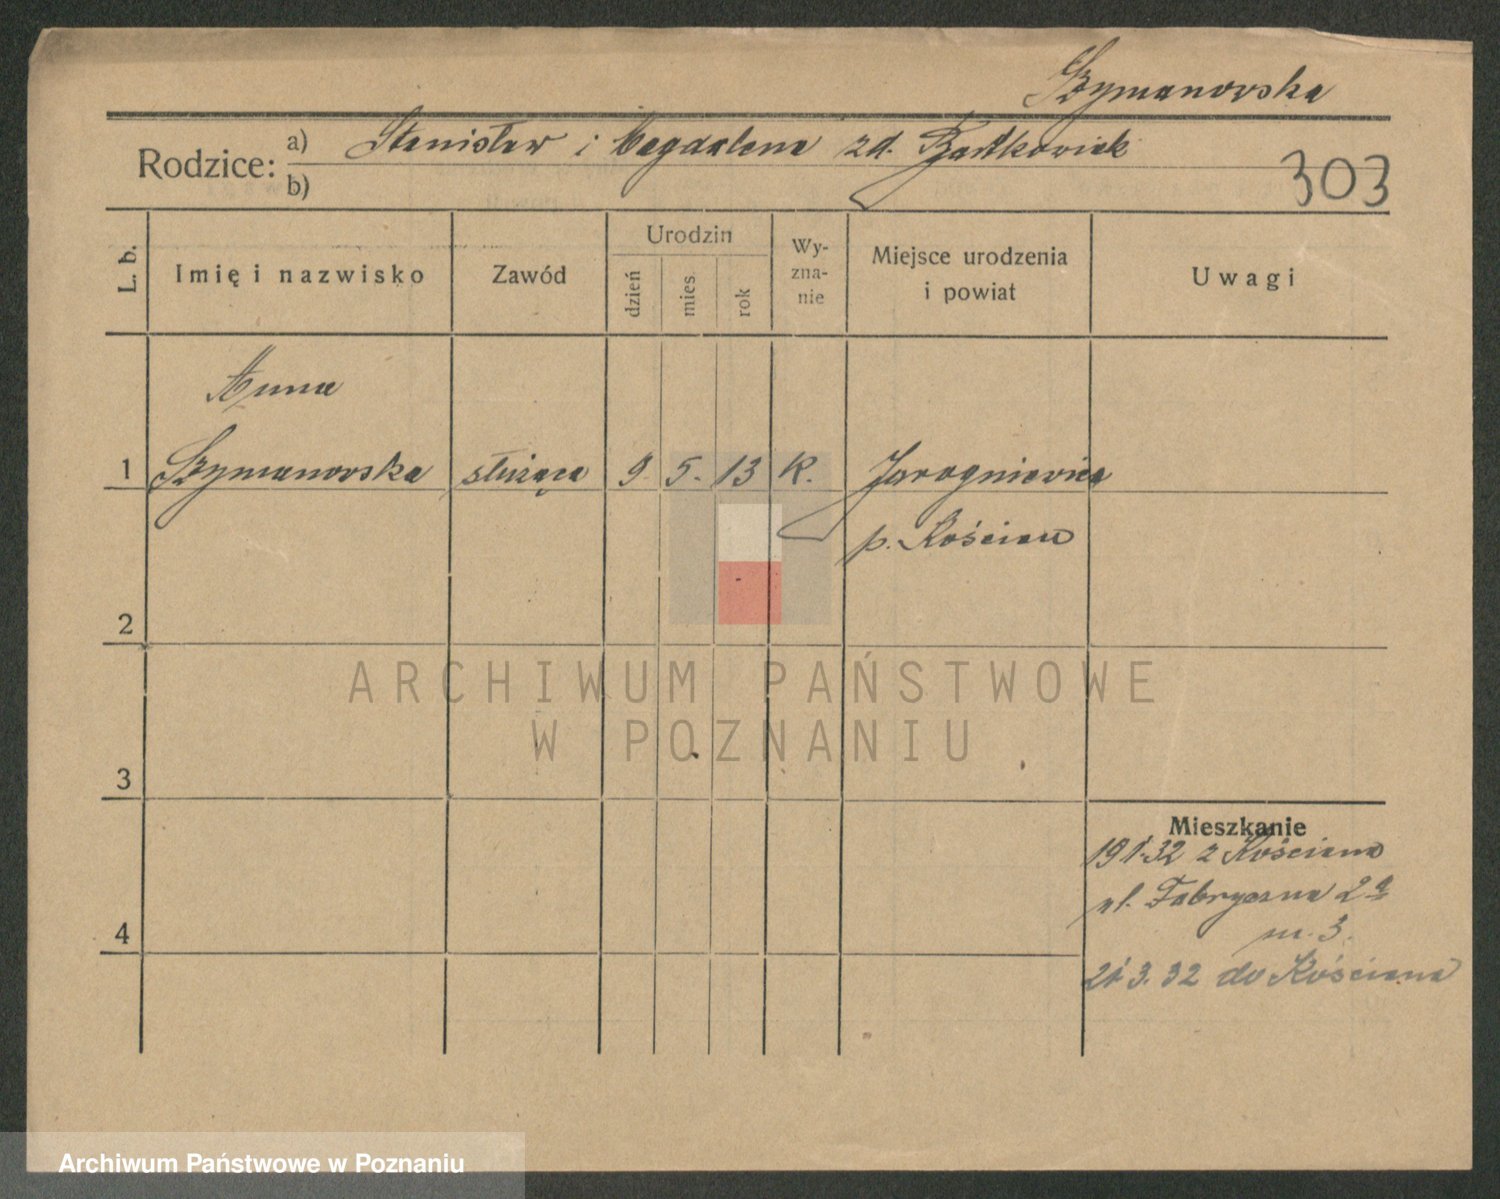 Szymanowska
Rodzice: a) Stanisław i Magdalena zd. Bartkowiak
b)
303
L. b. Imię i nazwisko Zawód Urodzin dzień mies rok Wy-zna-nie Miejsce urodzenia i powiat Uwagi
Anna
1 Szymanowska służąca 9. 5. 13 K. Jarogniewice
p. Kościan
2
ARCHIWUM PAŃSTWOWE
W POZNANIU
3
Mieszkanie
19 1.32 z Kościana
ul. Fabryczna 2a
m. 3.
4
21 3. 32 do Kościana
Archiwum Państwowe w Poznaniu